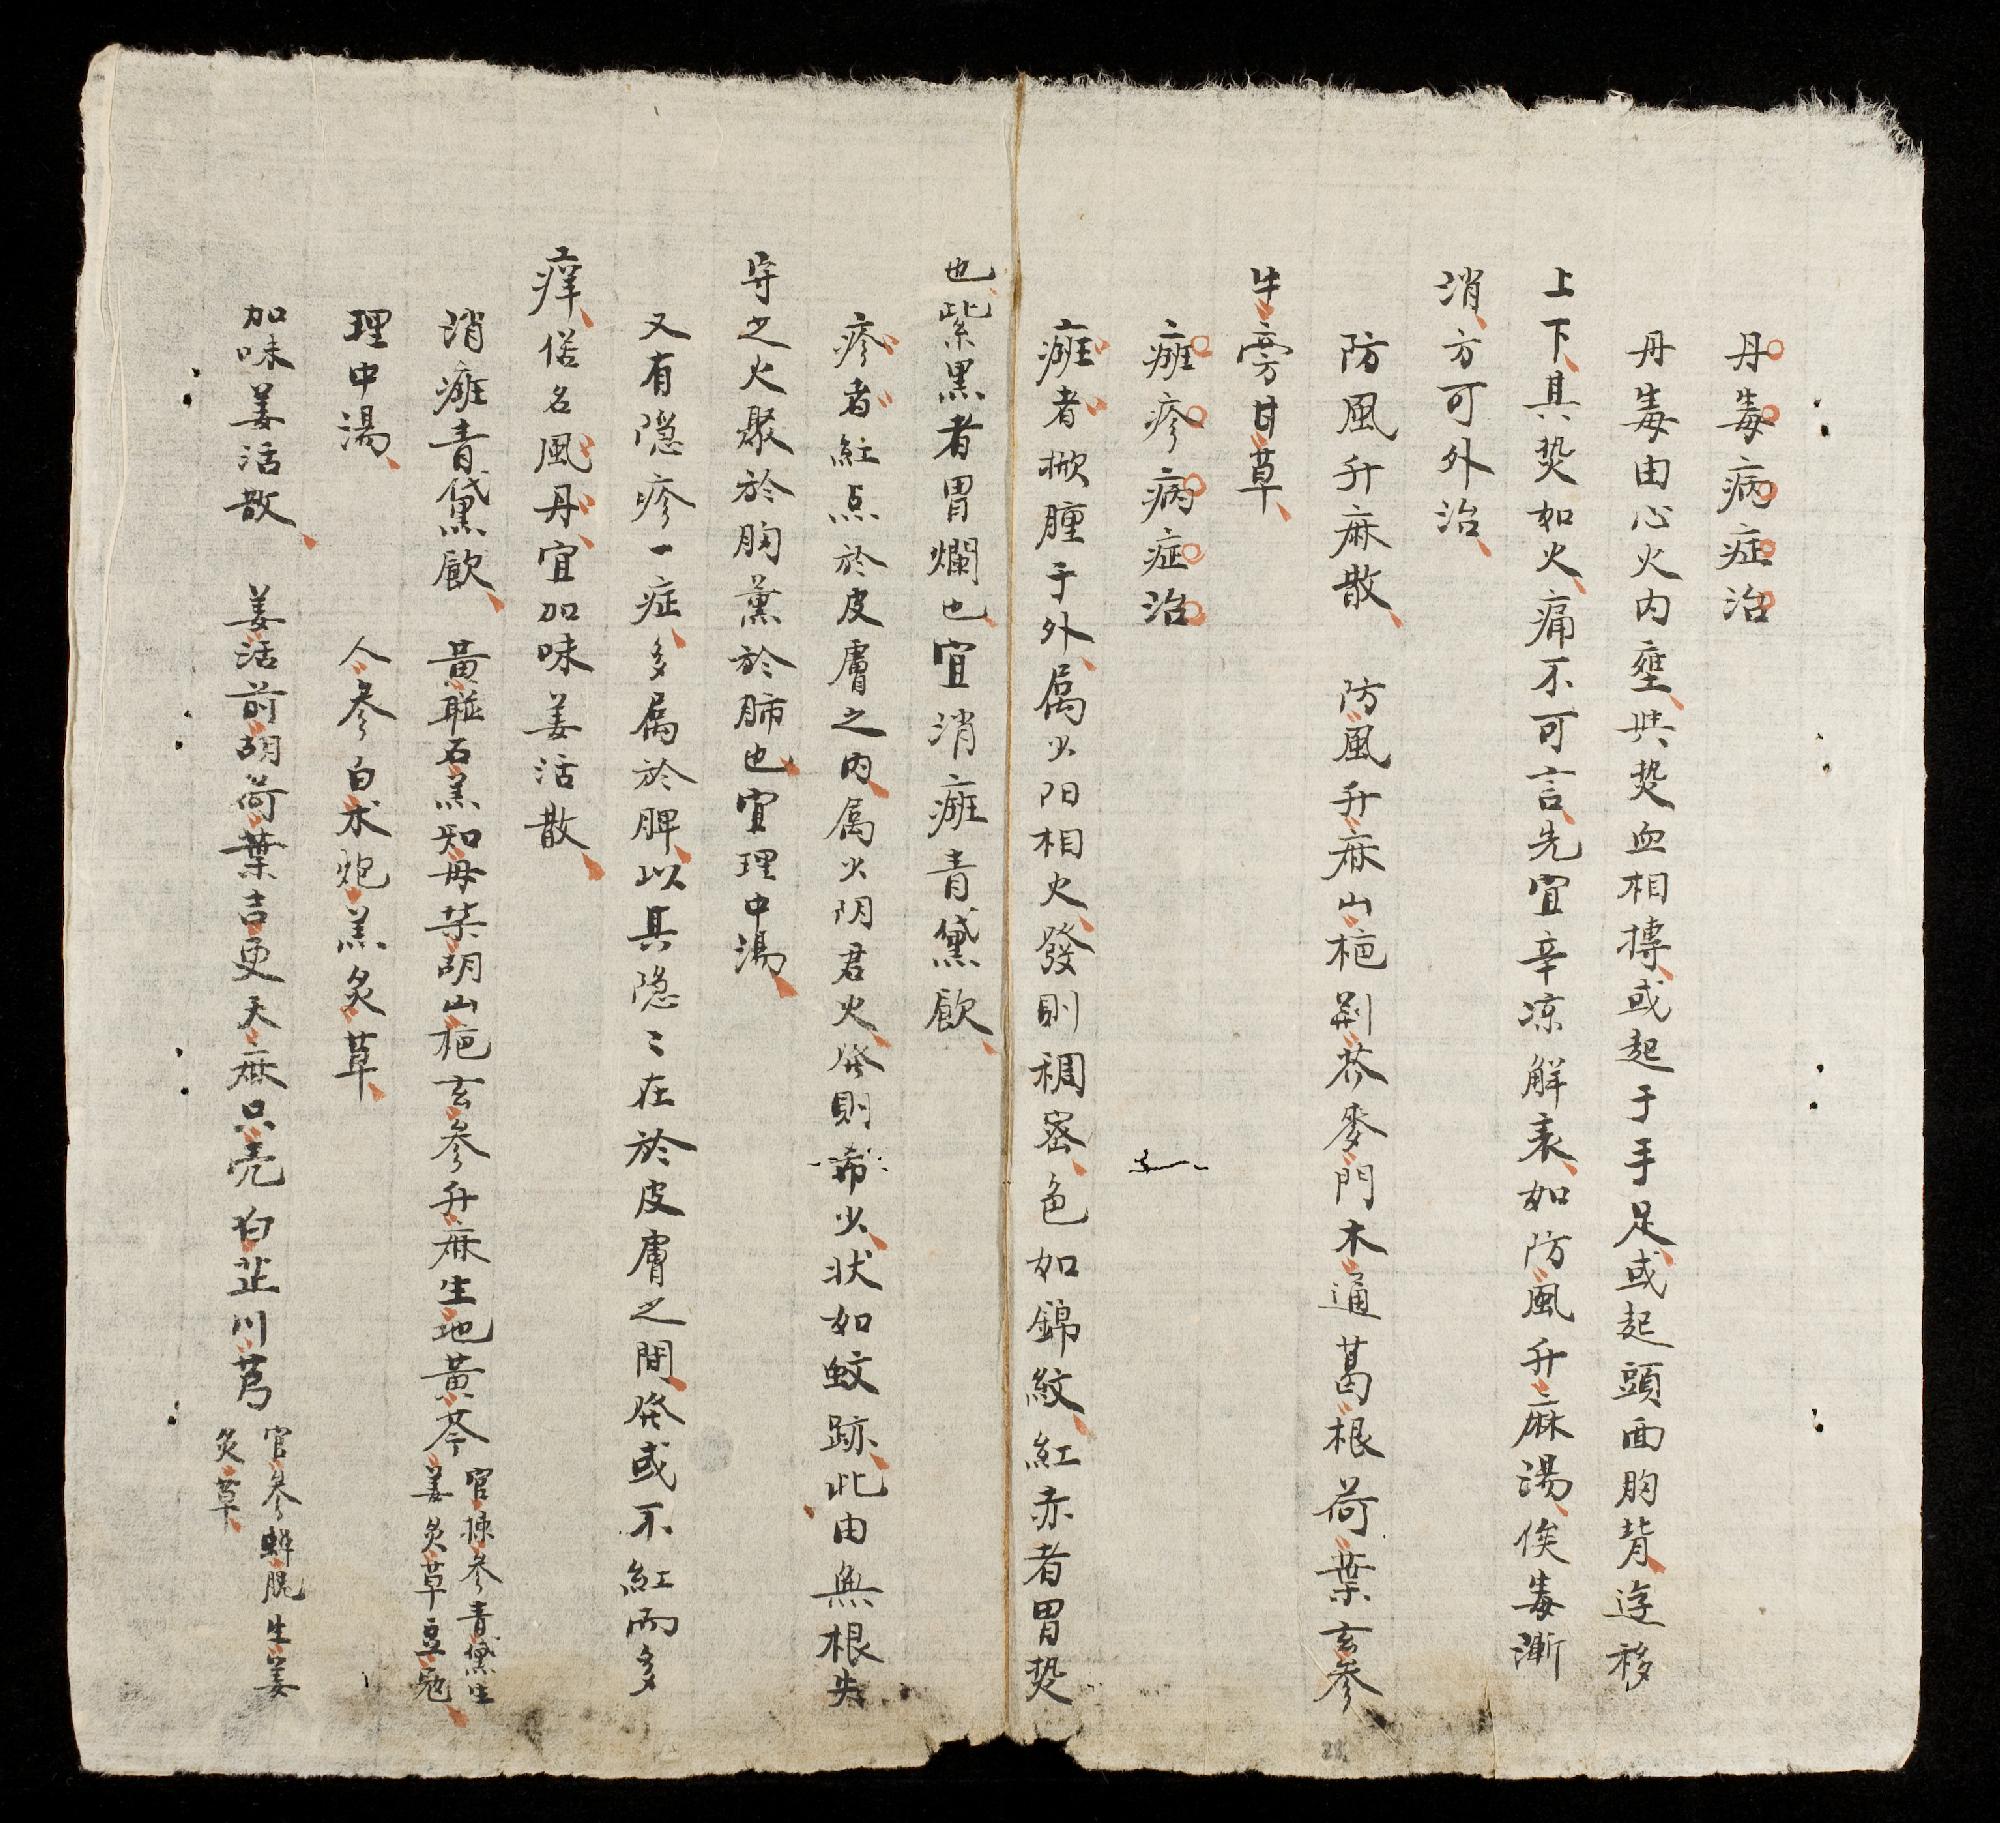 丹毒病症治
丹毒由心火内壅与热血相搏或起于手足或起頭面胸背逰移
上下其热如火痛不可言先宜辛凉解表如防風升麻湯俟毒漸
消方可外治
防風升麻散 防風升麻山栀荆芥麥門木通葛根荷葉玄参
牛旁甘草
癍疹病症治
癍者掀腫于外属少阳相火發則稠密色如錦紋紅赤者胃热
也紫黑者胃爛也宜消癍青黛飲
疹者紅点於皮膚之内属少阴君火発則希少状如蚊跡此由無根失
守之火聚於胸薰於肺也宜理中湯
又有隠疹一症多属於脾以其隠〻在於皮膚之間発或不紅而多
痒俗名風丹宜加味姜活散
消癍青黛飲 黄連石羔知母柴胡山栀玄参升麻生地黄芩 官揀参青黛生
姜炙草豆
理中湯 人参白朮炮羔炙草
加味姜活散 姜活前胡荷葉吉更天麻只壳白芷川芎 官参蝉脱生姜
炙草
28